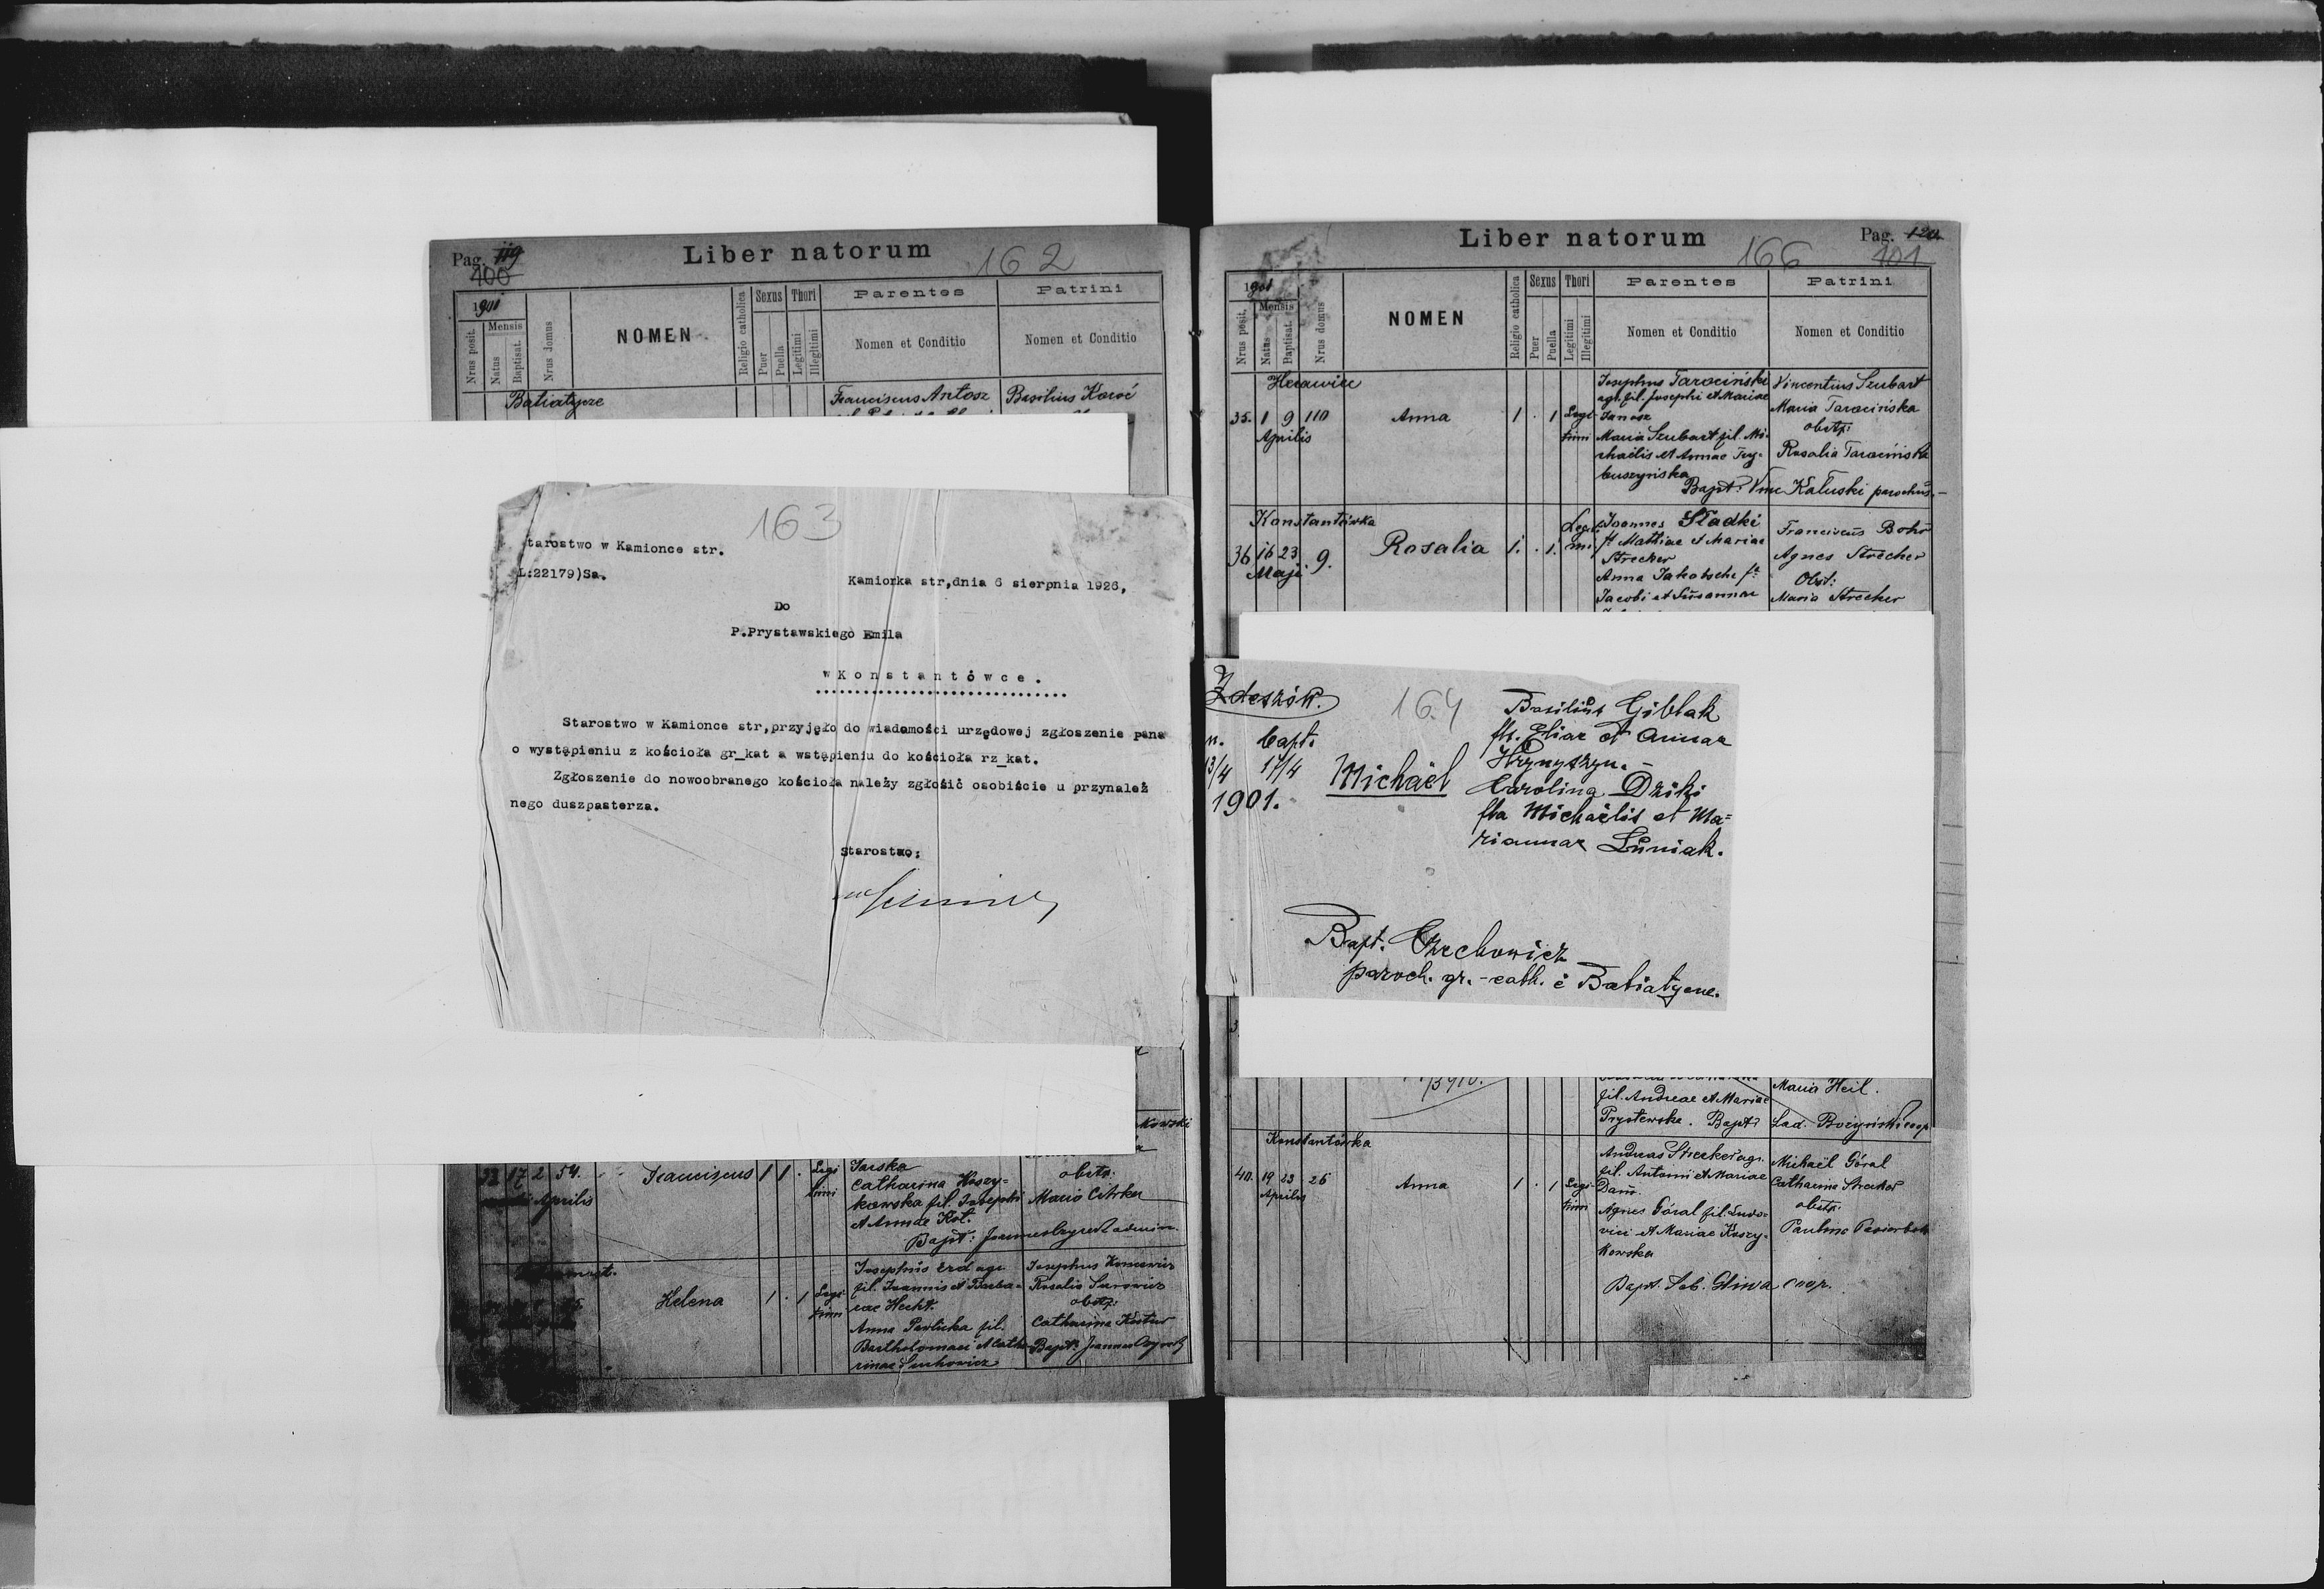 Pag. 119
100
Liber natorum
162
1901
Nrus posit.
Mensis
Natus
Baptisat.
Nrus domus
NOMEN
Religio catholica
Sexus
Puer
Puella
Thori
Legitimi
Illegitimi
Parentes
Nomen et Conditio
Patrini
Nomen et Conditio
Batiatycze
Franciscus Antosz
Basilius Karoć
163
tarostwo w Kamionce str.
L:22179)Sa.
Kamionka str,dnia 6 sierpnia 1926,
Do
P.Prystawskiego Emila
w Konstantówce.
Starostwo w Kamionce str,przyjęło do wiadomości urzędowej zgłoszenie pana
o wystąpieniu z kościoła gr_kat a wstąpieniu do kościoła rz_kat.
Zgłoszenie do nowoobranego kościoła należy zgłosić osobiście u przynależ
nego duszpasterza.
Starostwo:
kowski
33 17 2 54. Franciscus 1 1 . Legi
timi
Aprilis
Catharina Koszy-
kowska fil. Josephi
et Annae Kot.
obstx:
Maria Citrka
Bapt: Joannes
Helena 1 . 1 Legi
timi
Josephus Erd agr.
fil. Joannis et Barba-
rae Hecht.
Anna Pawlicka fil.
Bartholomaei et Catha
rinae Suchowicz
Josephus
Rosalia
obstx:
Catharina
Bapt: Joannes
Liber natorum
166
Pag. 120
101
1901
Nrus posit.
Mensis
Natus
Baptisat.
Nrus domus
NOMEN
Religio catholica
Sexus
Puer
Puella
Thori
Legitimi
Illegitimi
Parentes
Nomen et Conditio
Patrini
Nomen et Conditio
35. 1 9 110 Anna 1 . 1 Legi
timi
Aprilis
Josephus Tarociński
agr. fil. Josephi et Mariae
Janosz
Maria Szubart fil. Mi-
chaëlis et Annae Try-
buszyńska
Vincentius Szubart
Maria Tarocińska
obstx:
Rosalia Tarocińska
Bapt: Vinc Kałuski parochus.
Konstantówka
36 16 23 9. Rosalia 1. . 1. Legi
mi
Maji
Joannes Sładki
f. Mathiae et Mariae
Strecker
Anna Jakobsche f.
Jacobi et Susannae
Franciscus Bohr
Agnes Strecher
Obst:
Maria Strecker
164
Zdeszów.
n. bapt.
13/4 17/4
1901.
Michaël
Basilius Giblak
fls. Eliae et Annae
Hrynyszyn.
Carolina Dziki
fla Michaëlis et Ma=
riannae Łuniak.
Bapt. Czechowicz
paroch. gr.-cath. è Batiatycze.
fil. Andreae et Mariae
Prystewska. Bapt:
Maria Heil.
Lad. Boczyński coop
Konstantówka
40. 19 23 26 Anna 1 . 1 Legi
timi
Aprilis
Andreas Strecker agr.
fil. Antonii et Mariae
Dam.
Agnes Góral fil. Ludo-
vici et Mariae Koszy-
kowska
Michaël Góral
Catharina Strecker
obstx:
Paulina
Bapt. Seb. Gliwa coop.